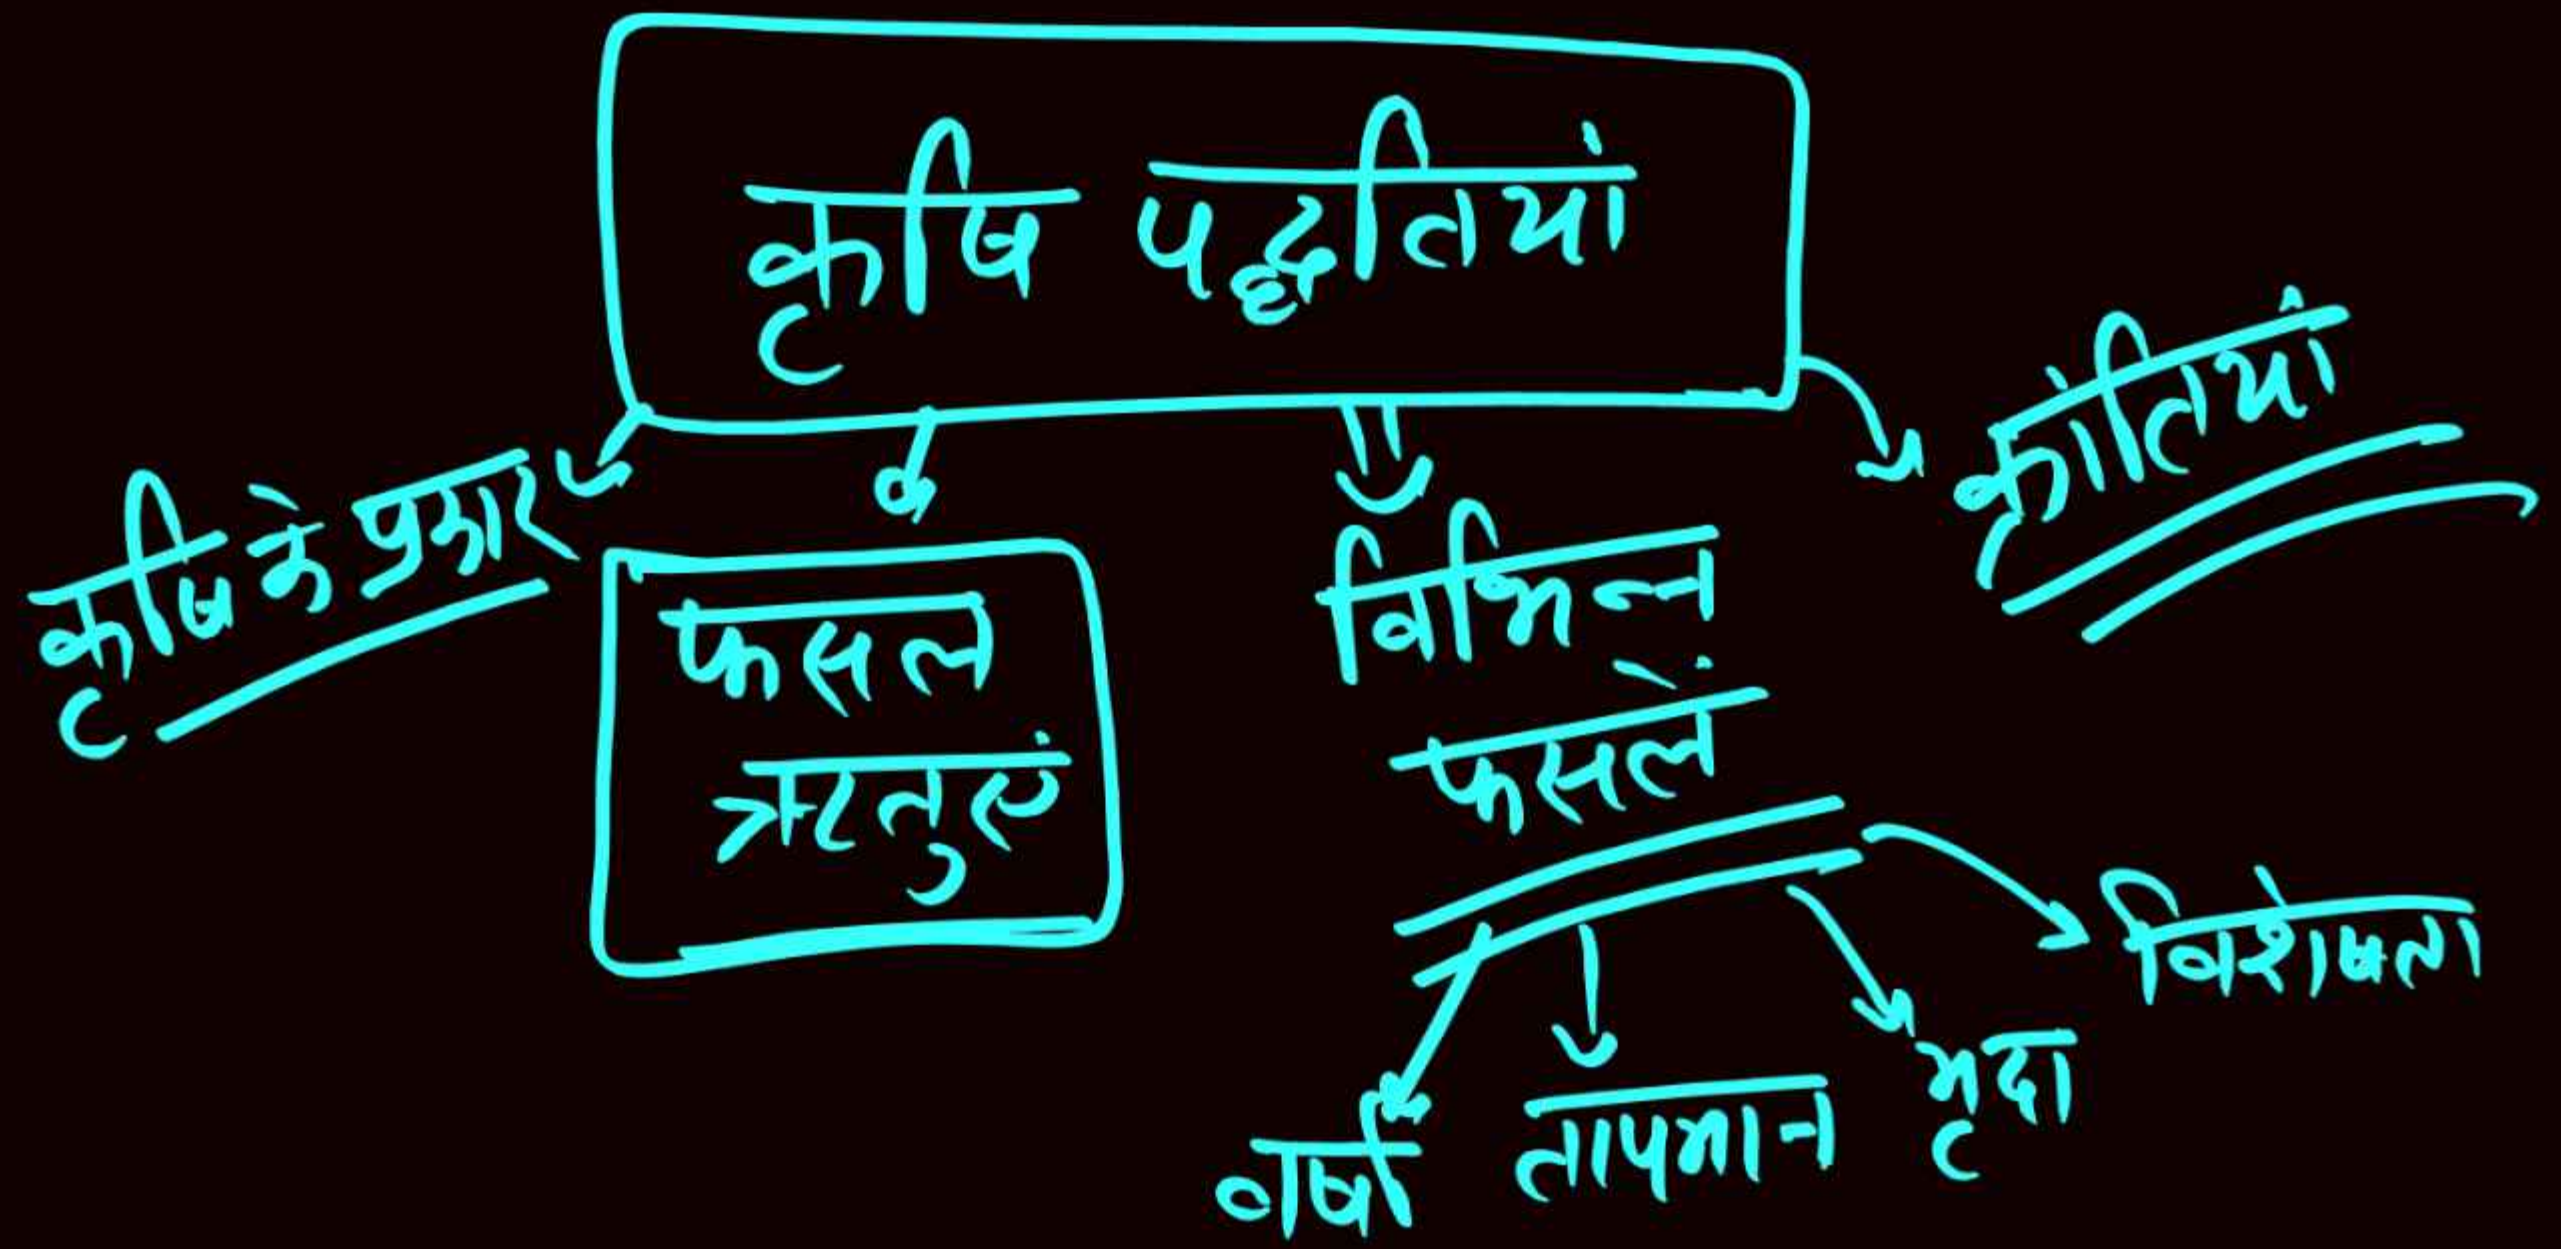 कृषि पद्धतियां
कृषि के प्रकार
फसल
ऋतुएं
विभिन्न
फसलें
क्रांतियां
वर्षा
तापमान
मृदा
विशेषता